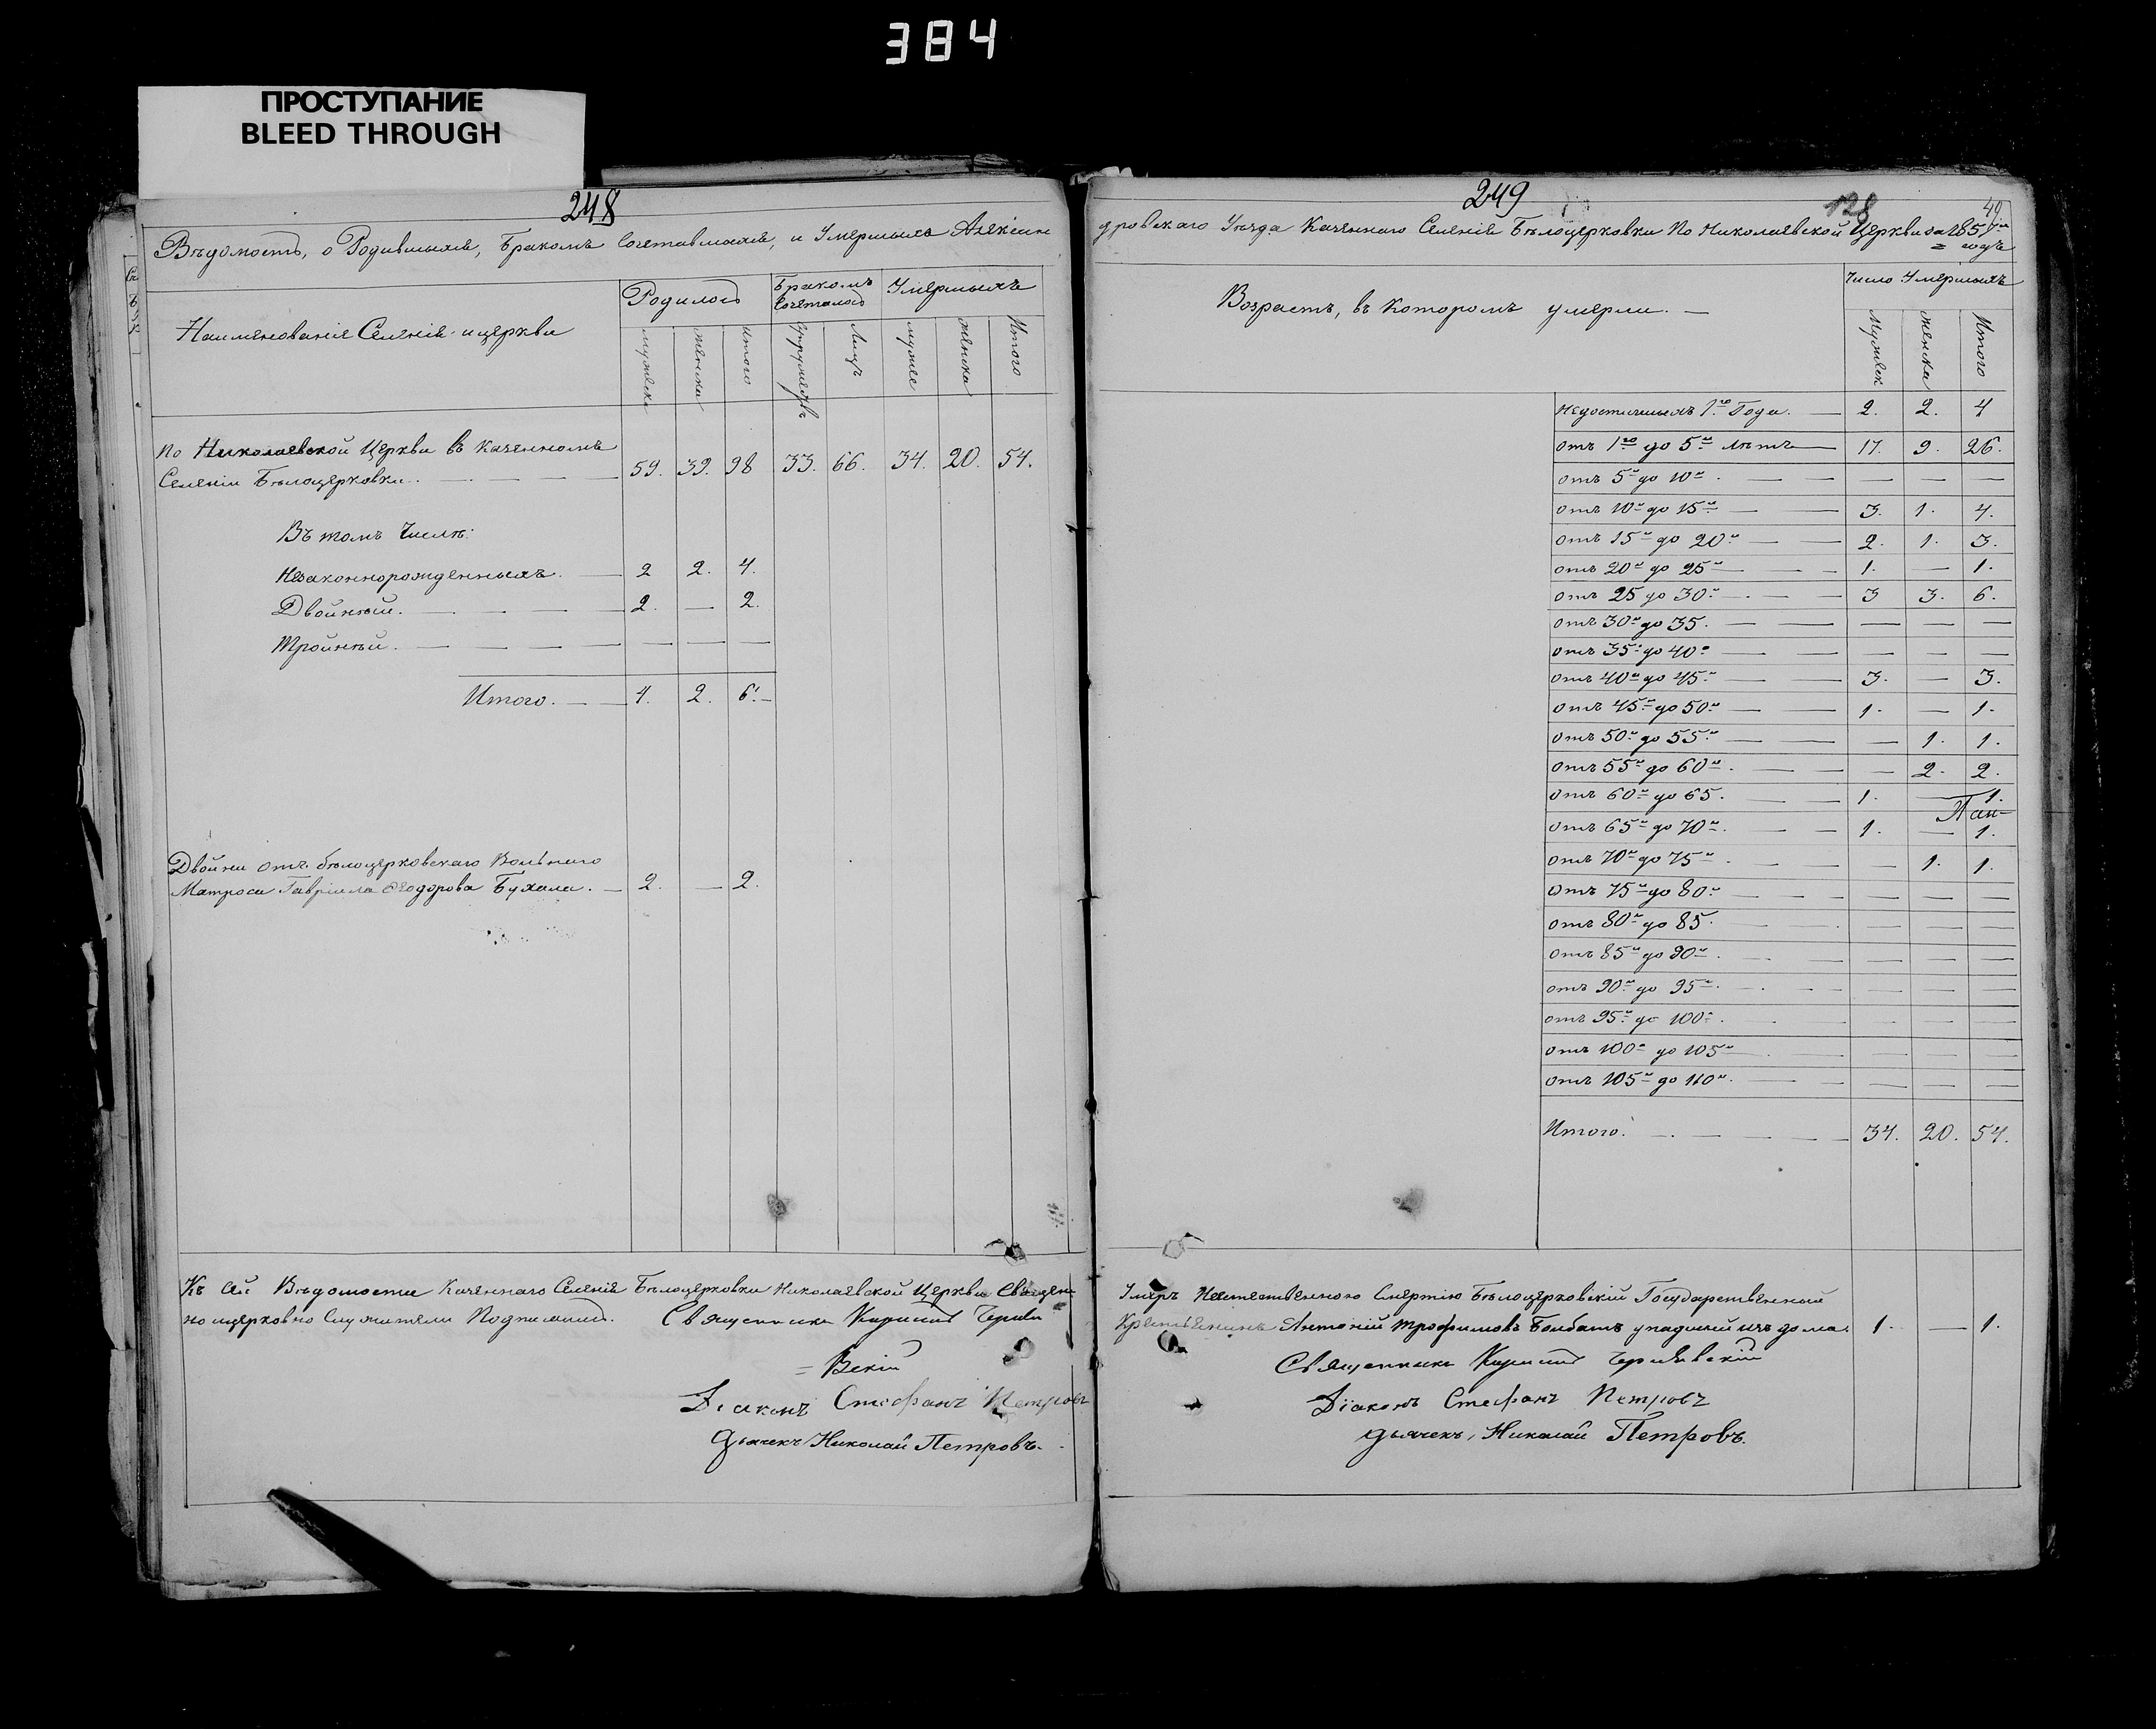 384
ПРОСТУПАНИЕ
BLEED THROUGH
248
Вѣдомость, о Родившыхся, Бракомъ Сочетавшихся, и Умершыхъ Алексан
Наименованіе Селенія и церкви
Родилось
Бракомъ Сочеталось
Умершыхъ
мужеска
женска
итого
супружествъ
Лицъ
мужес
женска
Итого
По Николаевской Церкви въ Казенномъ
Селеніи Бѣлоцерковки. 59. 39. 98 33. 66. 34. 20. 54.
Въ томъ Числѣ:
Незаконнорожденныхъ. — 2 2. 4.
Двойней. — 2. — 2.
Тройней. — — — —
Итого. — 4. 2. 6.
Двойни отъ бѣлоцерковскаго Вольнаго
Матроса Гавріила Ѳеодорова Бухала. — 2. — 2.
Къ сей Вѣдомости Казеннаго Селенія Бѣлоцерковки Николаевской Церкви Священ-
но церковно Служители Подписались. Священникъ Кирилъ Черня
= Вскій
Діаконъ Стефанъ Петровъ
Дьячекъ Николай Петровъ.
249
128
49
дровскаго Уѣзда Казеннаго Селенія Бѣлоцерковки По Николаевской Церкви за 1857й
= годъ
Возрастъ, въ которомъ умерли. —
Число Умершыхъ
Мужеск
женска
Итого
Недостигшыхъ 1го Года. — 2. 2. 4
отъ 1го до 5и лѣтъ — 17. 9. 26.
отъ 5и до 10и. — — — —
отъ 10и до 15и — 3. 1. 4.
отъ 15и до 20и — 2. 1. 3.
отъ 20и до 25и — 1. — 1.
отъ 25 до 30и — 3 3. 6.
отъ 30и до 35. — — — —
отъ 35и до 40и — — — —
отъ 40и до 45и — 3. — 3.
отъ 45и до 50и — 1. — 1.
отъ 50и до 55и — — 1. 1.
отъ 55и до 60и. — — 2. 2.
отъ 60и до 65. — 1. — 1.
отъ 65и до 70и. — 1. — 1.
отъ 70и до 75и. — — 1. 1.
отъ 75и до 80и — — — —
отъ 80и до 85. — — — —
отъ 85и до 90и. — — — —
отъ 90и до 95и. — — — —
отъ 95и до 100и. — — — —
отъ 100и до 105и — — — —
отъ 105и до 110и. — — — —
Итого. — 34. 20. 54.
Умеръ Неестественною Смертію Бѣлоцерковскій Государственный
Крестьянинъ Антоній Трофимовъ Бомбатъ упадшій изъ дома. 1. — 1.
Священникъ Кирилъ Чернявскій
Діаконъ Стефанъ Петровъ
Дьячекъ, Николай Петровъ.